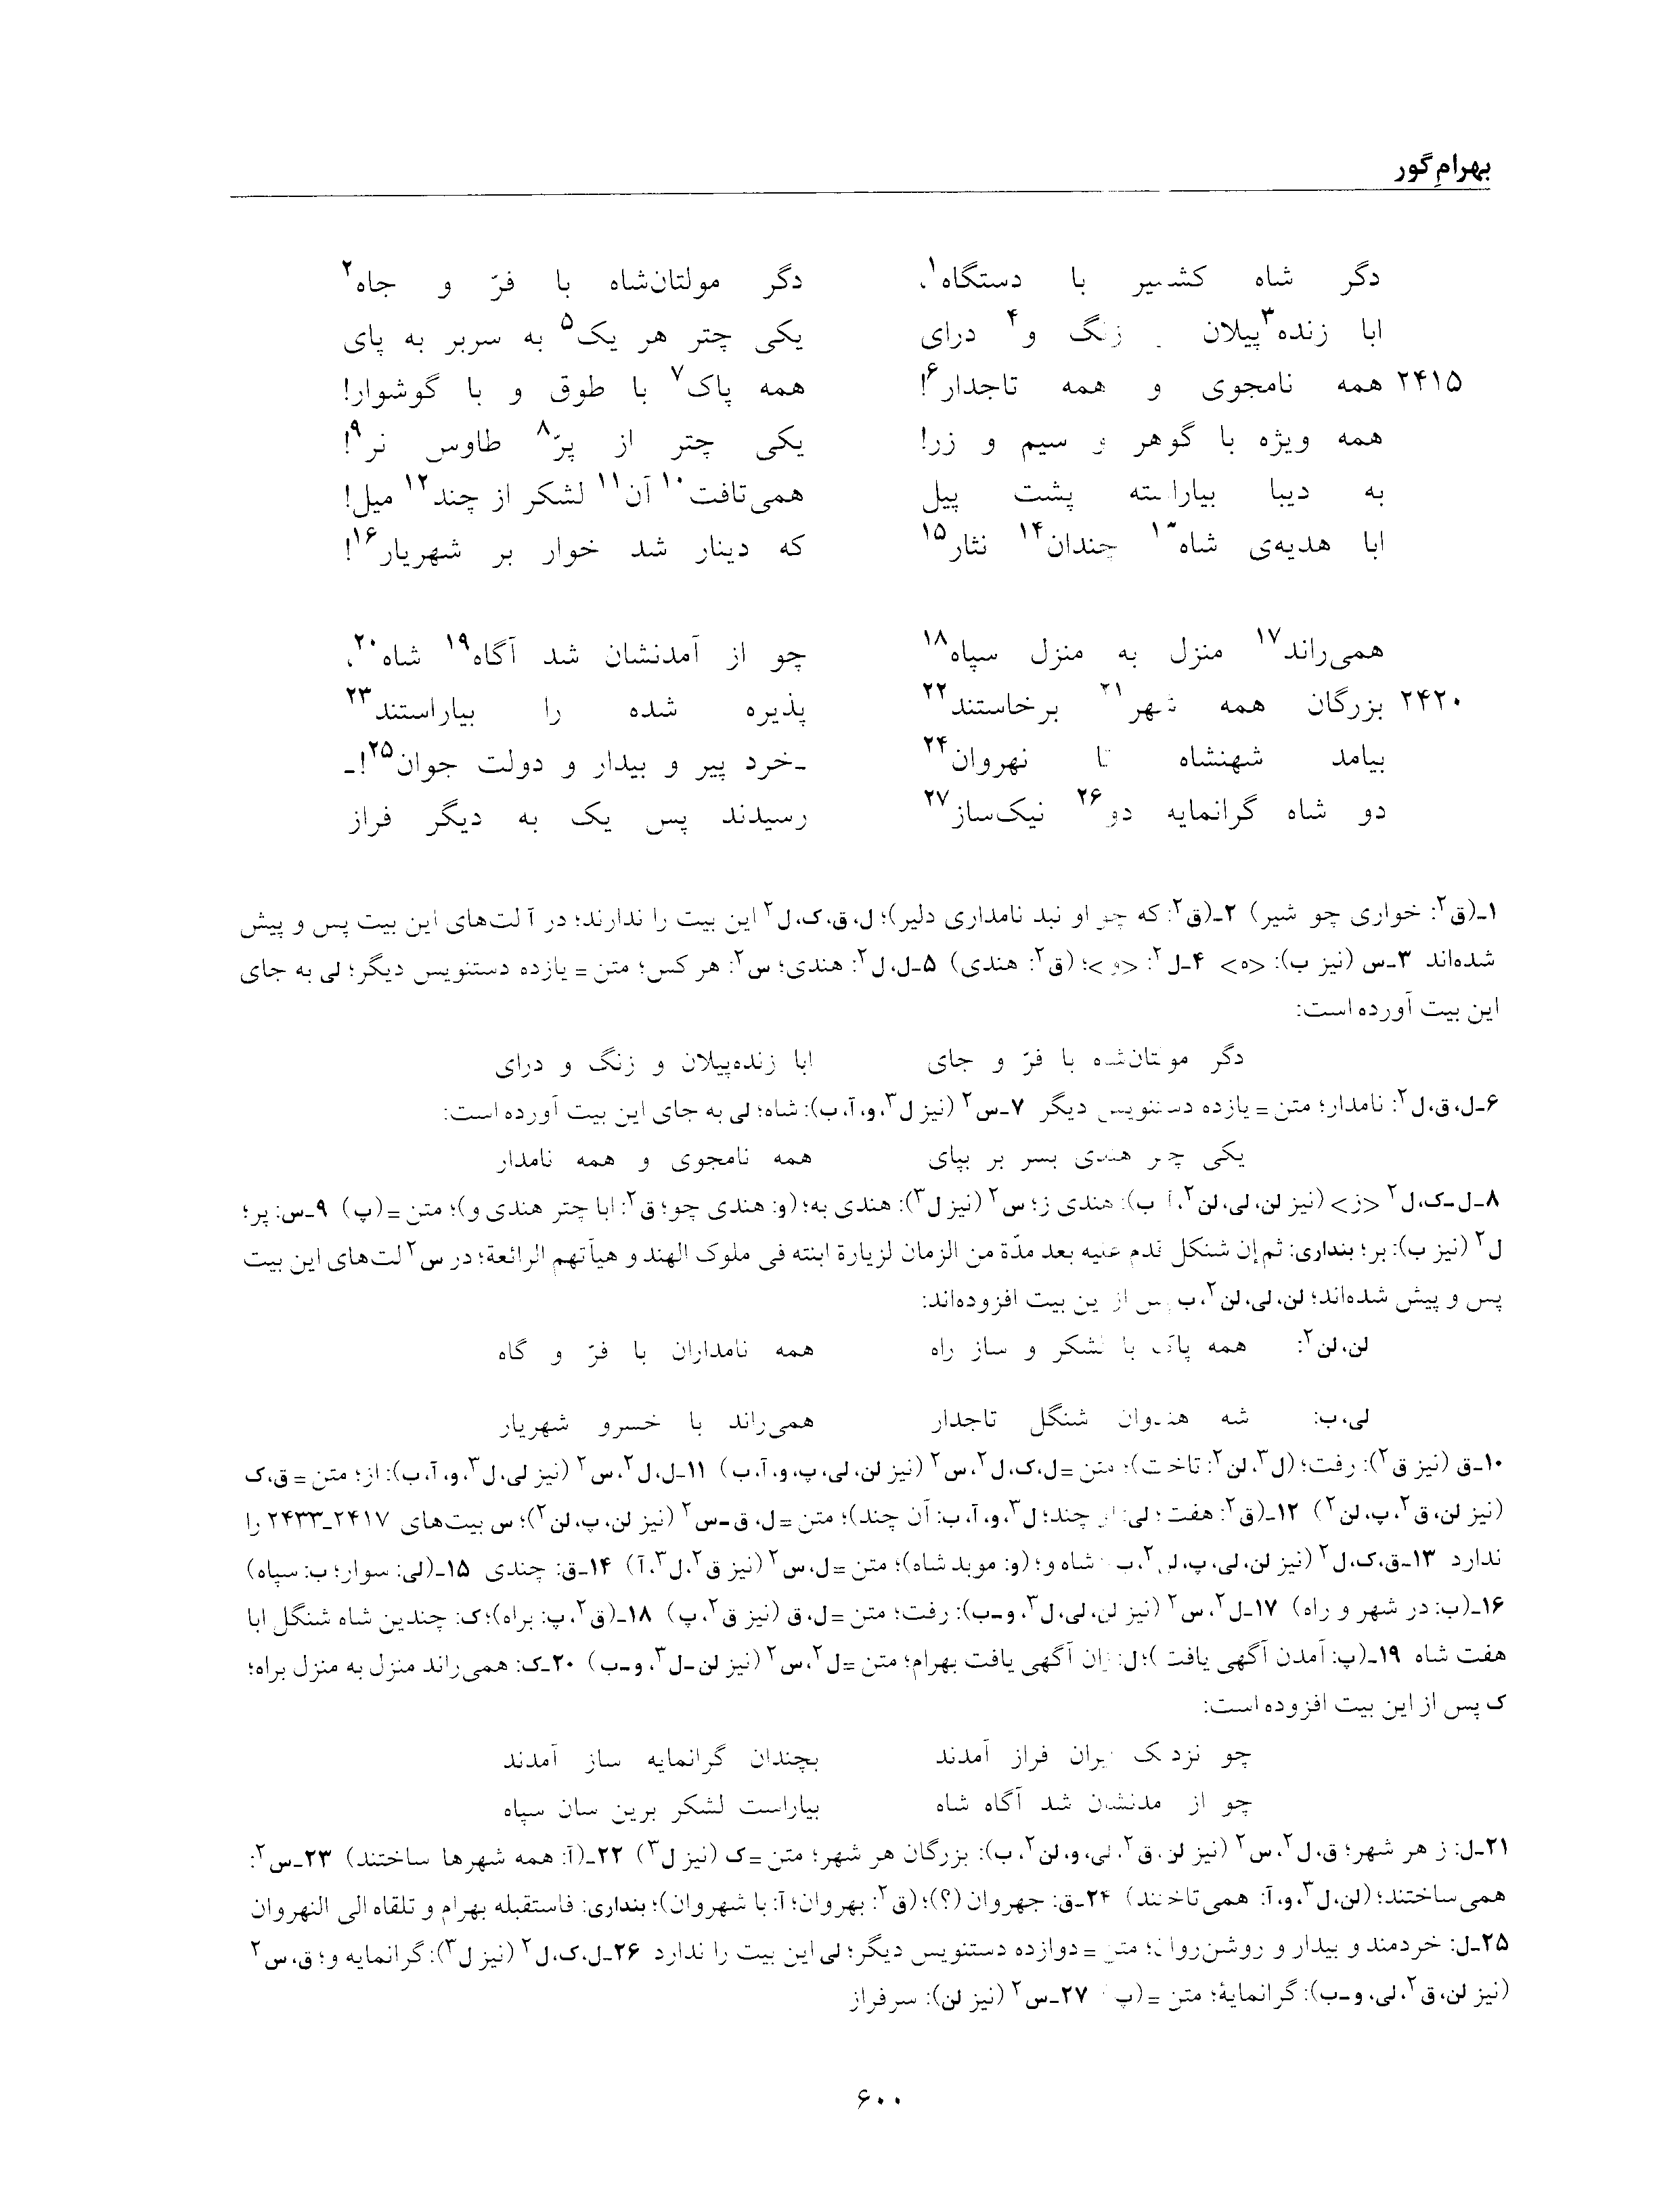 بهرامِ گور
دگر شاه کشمیر با دستگاه۱، دگر مولتان‌شاه با فرّ و جاه۲
ابا زنده۳پیلان و زنگ و۴ درای یکی چتر هر یک۵ به سربر به پای
۲۴۱۵ همه نامجوی و همه تاجدار۶! همه پاک۷ با طوق و با گوشوار!
همه ویژه با گوهر و سیم و زر! یکی چتر از پرّ۸ طاوس نر۹!
به دیبا بیاراسته پشت پیل همی‌تافت۱۰ آن۱۱ لشکر از چند۱۲ میل!
ابا هدیه‌ی شاه۱۳ چندان۱۴ نثار۱۵ که دینار شد خوار بر شهریار۱۶!
همی‌راند۱۷ منزل به منزل سپاه۱۸ چو از آمدنشان شد آگاه۱۹ شاه۲۰،
۲۴۲۰ بزرگان همه شهر۲۱ برخاستند۲۲ پذیره شده را بیاراستند۲۳
بیامد شهنشاه تا نهروان۲۴ ـ‌خرد پیر و بیدار و دولت جوان۲۵!ـ
دو شاه گرانمایه دو۲۶ نیک‌ساز۲۷ رسیدند پس یک به دیگر فراز
۱ـ(ق۲: خواری چو شیر) ۲ـ(ق۲: که چو او نبد نامداری دلیر)؛ ل،ق،ک،ل۲ این بیت را ندارند؛ در آ لت‌های این بیت پس و پیش
شده‌اند ۳ـس (نیز ب): <ه> ۴ـل۲: <و>؛ (ق۲: هندی) ۵ـل،ل۲: هندی؛ س۲: هر کس؛ متن = یازده دستنویس دیگر؛ لی به جای
این بیت آورده است:
دگر مولتان‌شه با فرّ و جای ابا زنده‌پیلان و زنگ و درای
۶ـل،ق،ل۲: نامدار؛ متن = یازده دستنویس دیگر ۷ـس۲ (نیز ل۳،و،آ،ب): شاه؛ لی به جای این بیت آورده است:
یکی چتر هندی بسر بر بپای همه نامجوی و همه نامدار
۸ـل‌ـک،ل۲ <ز> (نیز لن،لی،لن۲،آ، ب): هندی ز؛ س۲ (نیز ل۳): هندی به؛ (و: هندی چو؛ ق۲: ابا چتر هندی و)؛ متن =(پ) ۹ـس: پر؛
ل۲ (نیز ب): بر؛ بنداری: ثم إن شنکل قدم علیه بعد مدّة من الزمان لزیارة ابنته فی ملوک الهند و هیأتهم الرائعة؛ در س۲ لت‌های این بیت
پس و پیش شده‌اند؛ لن،لی،لن۲،ب پس از این بیت افزوده‌اند:
لن،لن۲: همه پاک با لشکر و ساز راه همه نامداران با فرّ و گاه
لی،ب: شه هندوان شنگل تاجدار همی‌راند با خسرو شهریار
۱۰ـق (نیز ق۲): رفت؛ (ل۳،لن۲: تاخت)؛ متن =ل،ک،ل۲،س۲ (نیز لن،لی،پ،و،آ،ب) ۱۱ـل،ل۲،س۲ (نیز لی،ل۳،و،آ،ب): از؛ متن =ق،ک
(نیز لن،ق۲،پ،لن۲) ۱۲ـ(ق۲: هفت؛ لی: از چند؛ ل۳،و،آ،ب: آن چند)؛ متن =ل، ق‌ـس۲ (نیز لن،پ،لن۲)؛ س بیت‌های ۲۴۱۷ـ۲۴۳۳ را
ندارد ۱۳ـق،ک،ل۲ (نیز لن،لی،پ،لن۲،ب): شاه و؛ (و: موبد شاه)؛ متن =ل،س۲ (نیز ق۲،ل۳،آ) ۱۴ـق: چندی ۱۵ـ(لی: سوار؛ ب: سپاه)
۱۶ـ(ب: در شهر و راه) ۱۷ـل۲،س۲ (نیز لن،لی،ل۳،و‌ـب): رفت؛ متن =ل،ق (نیز ق۲،پ) ۱۸ـ(ق۲،پ: براه)؛ ک: چندین شاه شنگل ابا
هفت شاه ۱۹ـ(پ: آمدن آگهی یافت)؛ ل: زان آگهی یافت بهرام؛ متن =ل۲،س۲ (نیز لن‌ـل۳،و‌ـب) ۲۰ـک: همی‌راند منزل به منزل براه؛
ک پس از این بیت افزوده است:
چو نزدیک ایران فراز آمدند بچندان گرانمایه ساز آمدند
چو از آمدنشان شد آگاه شاه بیاراست لشکر برین سان سپاه
۲۱ـل: ز هر شهر؛ ق،ل۲،س۲ (نیز لن،ق۲،لی،و،لن۲،ب): بزرگان هر شهر؛ متن =ک (نیز ل۳) ۲۲ـ(آ: همه شهرها ساختند) ۲۳ـس۲:
همی‌ساختند؛ (لن،ل۳،و،آ: همی‌تاختند) ۲۴ـق: جهروان (؟)؛ (ق۲: بهروان؛ آ: با شهروان)؛ بنداری: فاستقبله بهرام و تلقاه الی النهروان
۲۵ـل: خردمند و بیدار و روشن‌روان؛ متن = دوازده دستنویس دیگر؛ لی این بیت را ندارد ۲۶ـل،ک،ل۲ (نیز ل۳): گرانمایه و؛ ق،س۲
(نیز لن،ق۲،لی،و‌ـب): گرانمایهٔ؛ متن =(پ) ۲۷ـس۲ (نیز لن): سرفراز
۶۰۰